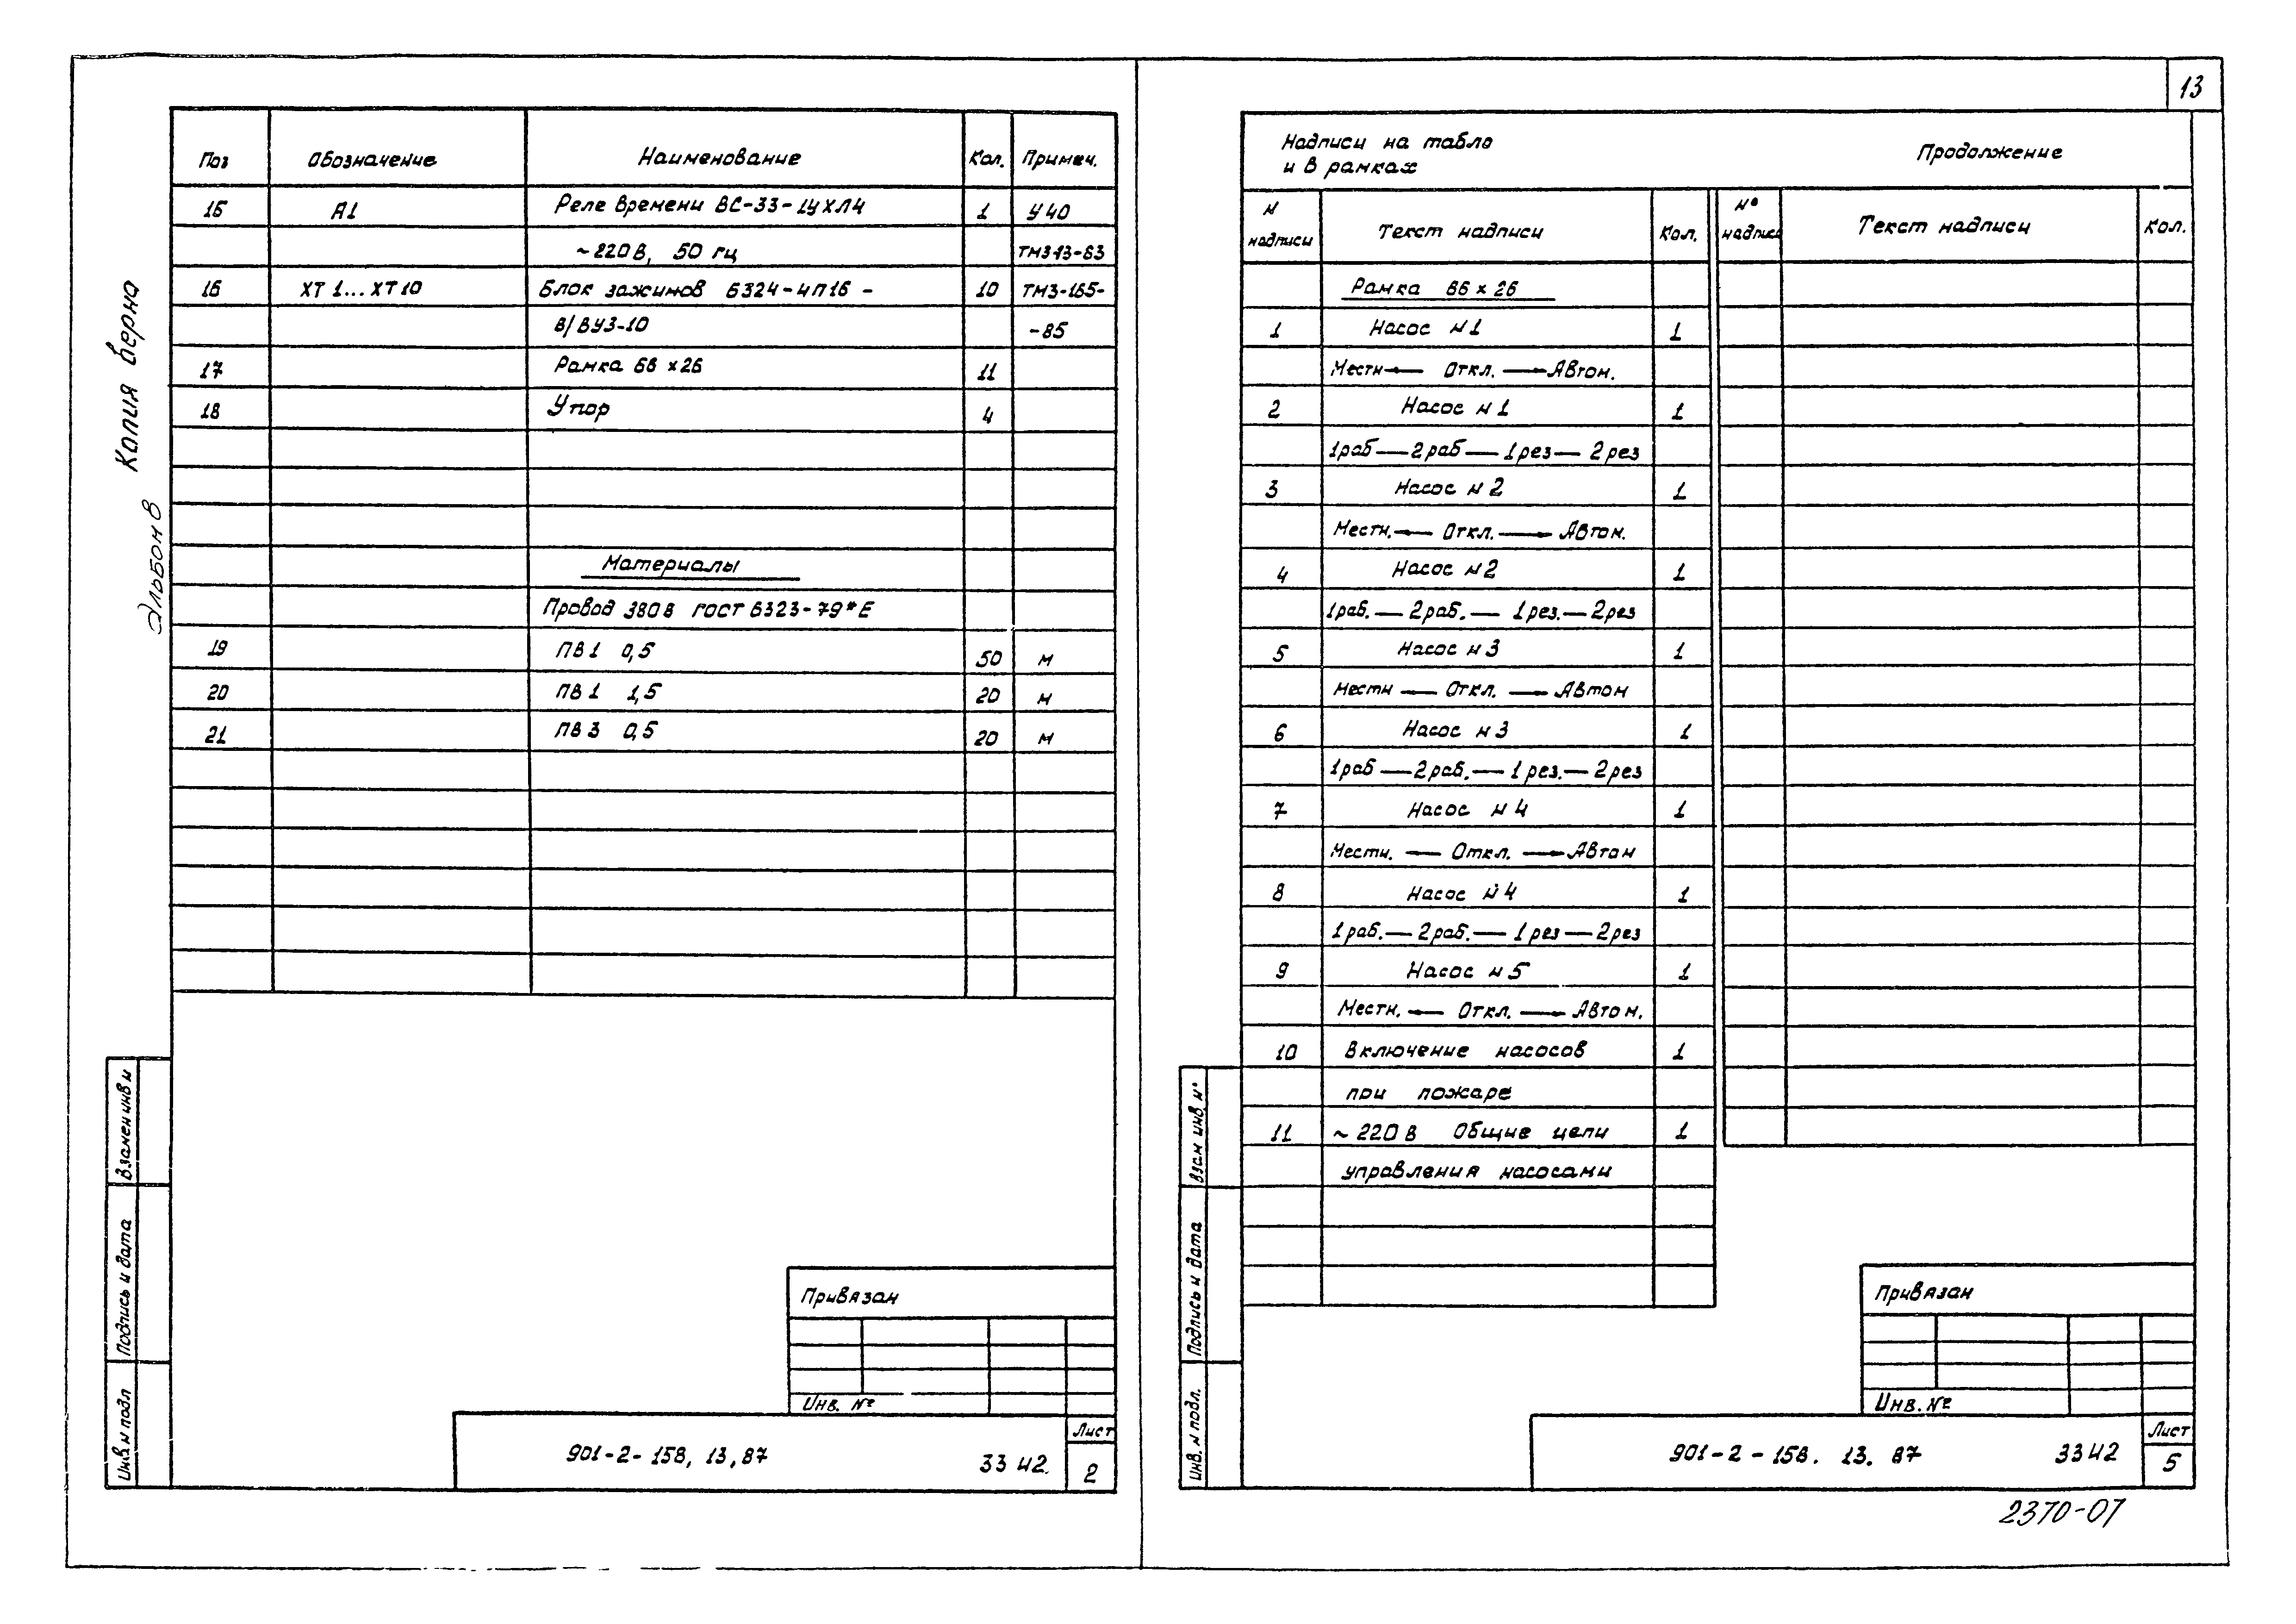 13
Копия верна
Альбом 8
Поз Обозначение Наименование Кол. Примеч.
15 А1 Реле времени ВС-33-1УХЛ4 1 У40
~220В, 50 гц ТМ3-13-83
16 ХТ 1...ХТ10 Блок зажимов Б324-4П16- 10 ТМ3-165-
В/ВУ3-10 -85
17 Рамка 66х26 11
18 Упор 4
Материалы
Провод 380В ГОСТ 6323-79*Е
19 ПВ1 0,5 50 м
20 ПВ1 1,5 20 м
21 ПВ3 0,5 20 м
Взамен инв и
Подпись и дата
Инв. и подл
Привязан
Инв. №
901-2-158, 13, 87 33 И2. Лист 2
Надписи на табло
и в рамках
Продолжение
N надписи Текст надписи Кол. N° надписи Текст надписи Кол.
Рамка 66 х 26
1 Насос N1 1
Местн ← Откл. → Автом.
2 Насос N1 1
1раб — 2раб — 1рез — 2рез
3 Насос N2 1
Местн. ← Откл. → Автом.
4 Насос N2 1
1раб. — 2раб. — 1рез. — 2рез
5 Насос N3 1
Местн ← Откл. → Автом
6 Насос N3 1
1раб — 2раб. — 1рез. — 2рез
7 Насос N4 1
Местн. ← Откл. → Автом
8 Насос N4 1
1раб. — 2раб. — 1рез — 2рез
9 Насос N5 1
Местн. ← Откл. → Автом.
10 Включение насосов 1
при пожаре
11 ~220В Общие цепи 1
управления насосами
Взам инв. N°
Подпись и дата
Инв. N подл.
Привязан
Инв. №
901-2-158. 13. 87 33И2 Лист 5
2370-07